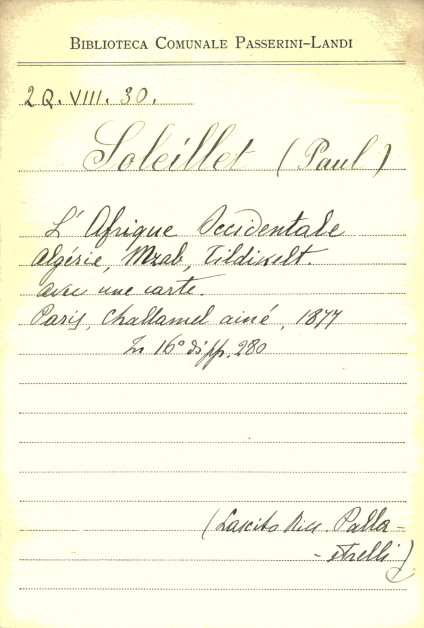 BIBLIOTECA COMUNALE PASSERINI-LANDI
2Q. VIII. 30.
Soleillet (Paul)
L'Afrique Occidentale
Algérie, Mzab, Tildikelt.
avec une carte.
Paris, Challamel ainé, 1877
In 16° di pp. 280
(Lascito Palla-
-strelli)